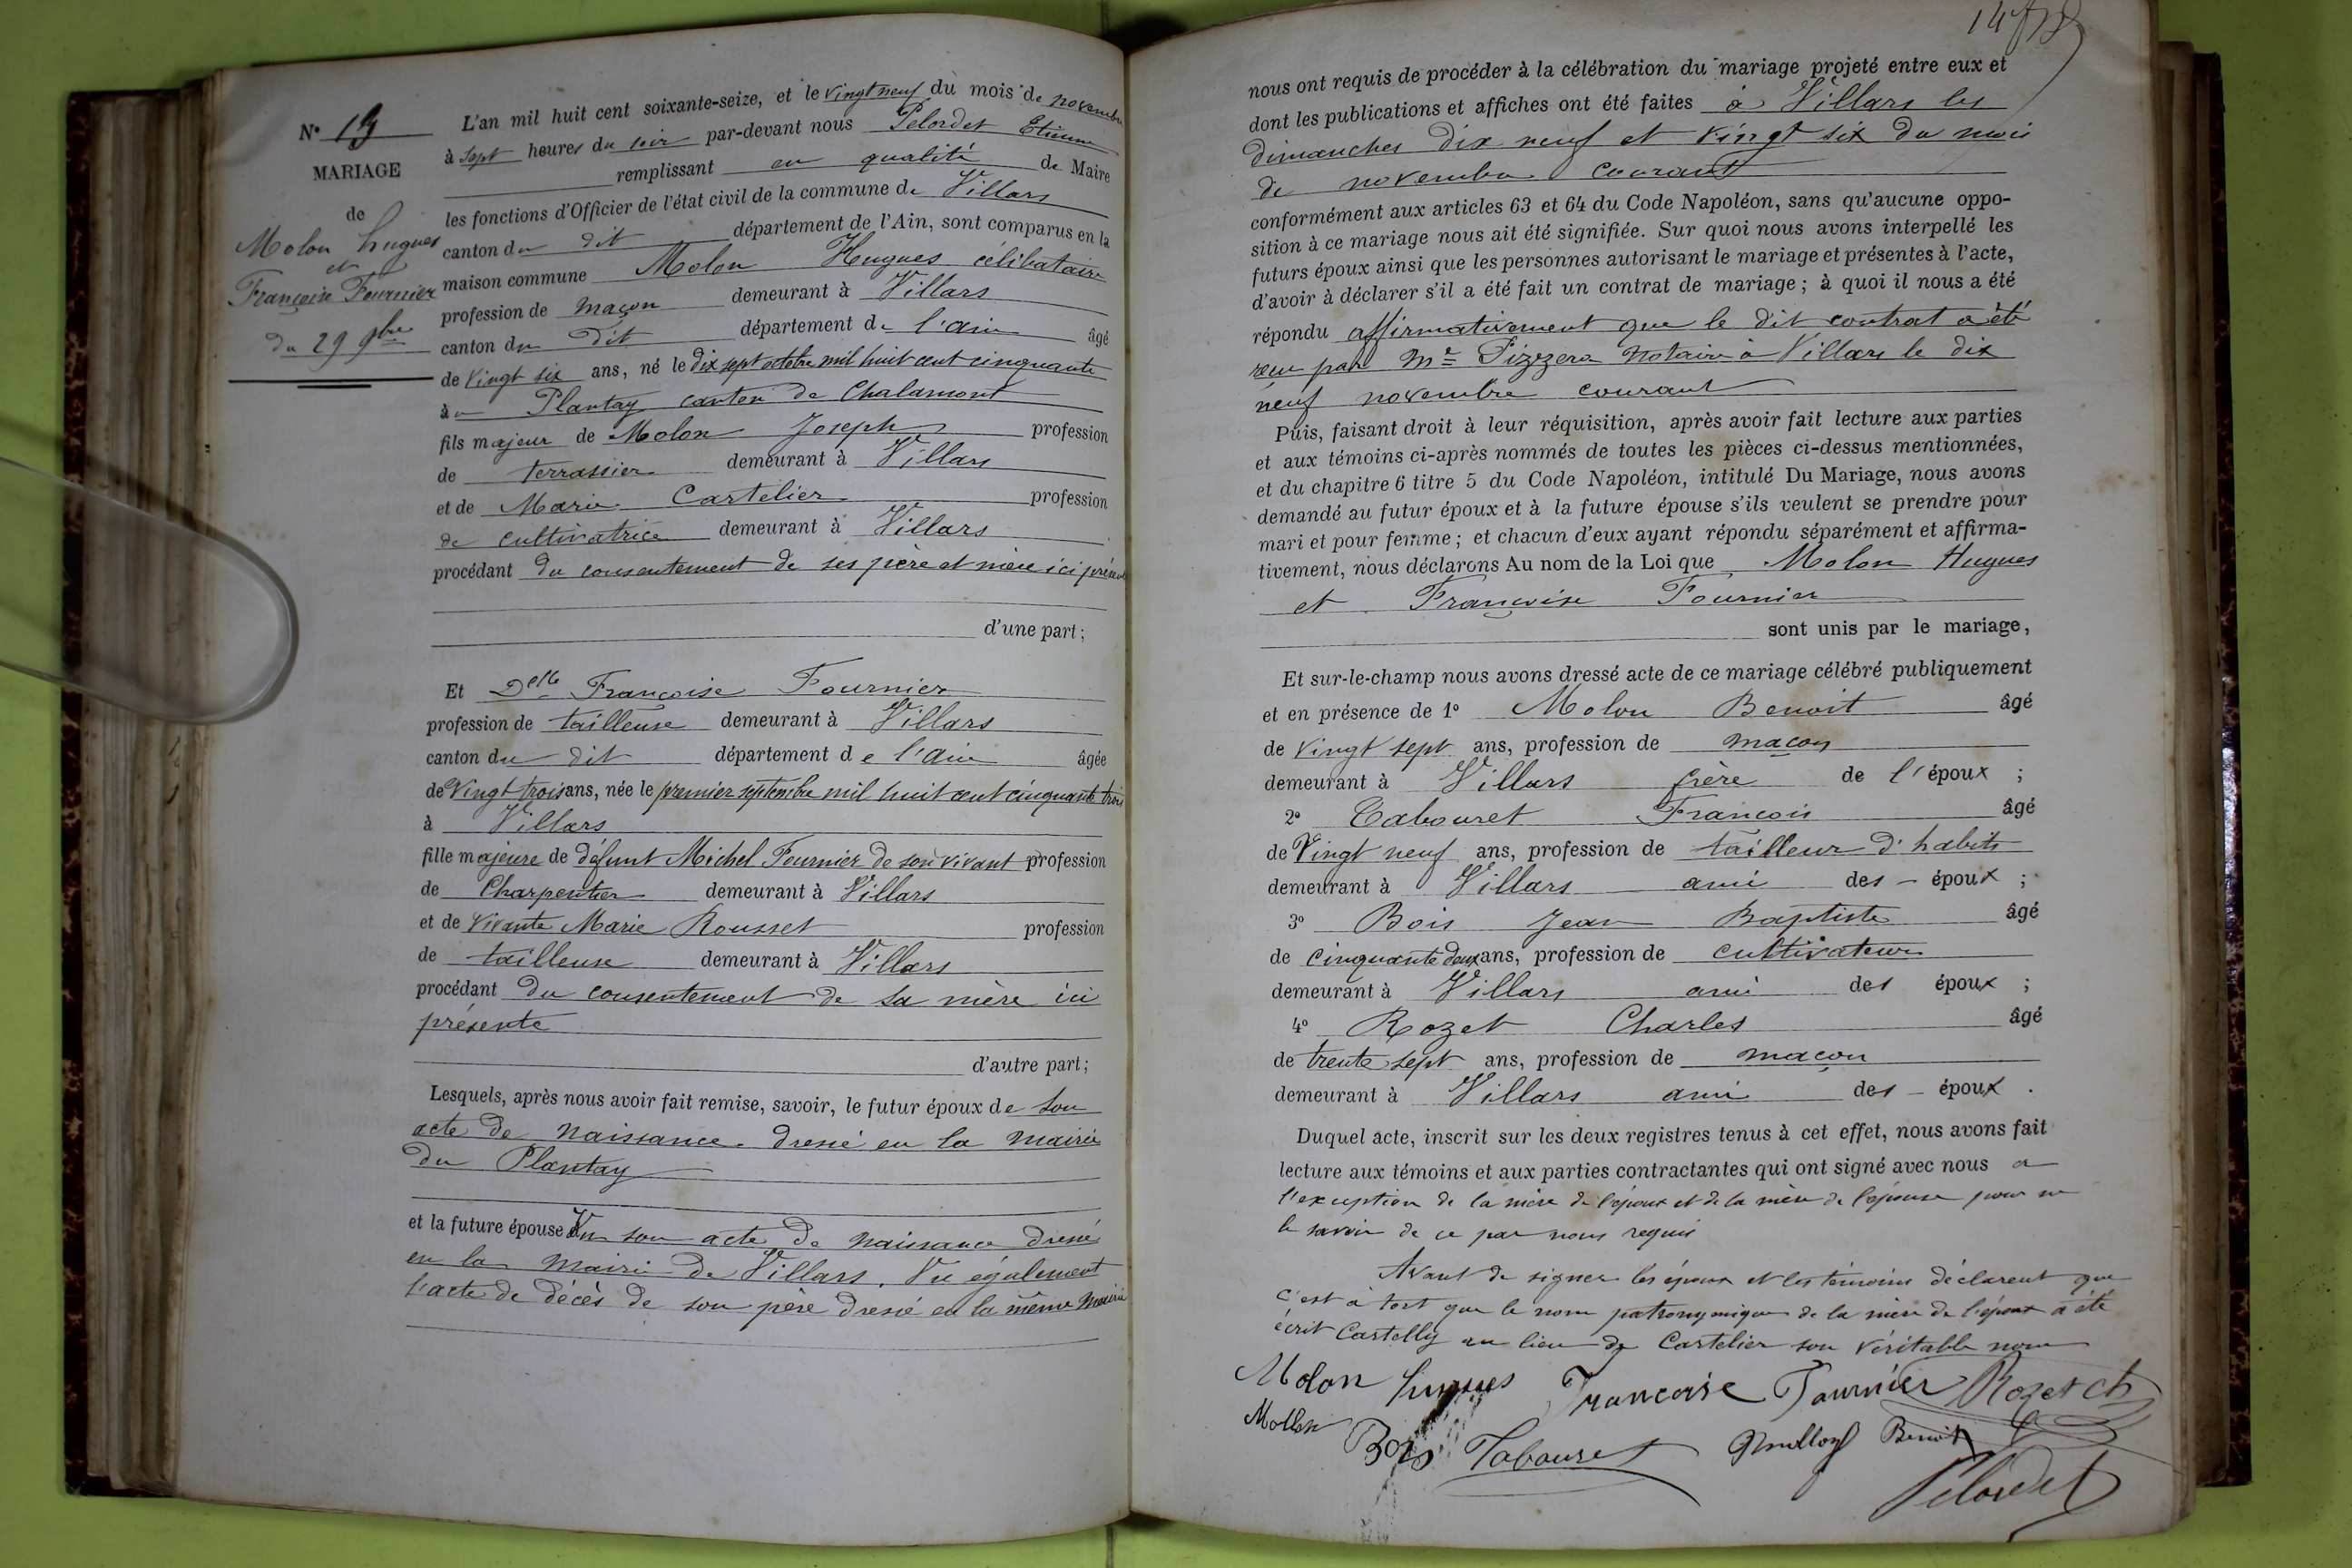 N° 19
MARIAGE
de
Molon hugues
et
Françoise Fournier
du 29 9bre
L'an mil huit cent soixante-seize, et le vingt neuf du mois de novembre
à sept heures du soir par-devant nous Pelordet Etienne
remplissant en qualité de Maire
les fonctions d'Officier de l'état civil de la commune de Villars
canton du dit département de l'Ain, sont comparus en la
maison commune Molon Hugues célibataire
profession de maçon demeurant à Villars
canton du dit département de l'ain âgé
de vingt six ans, né le dix sept octobre mil huit cent cinquante
au Plantay canton de Chalamont
fils majeur de Molon Joseph profession
de terrassier demeurant à Villars
et de Marie Cartelier profession
de cultivatrice demeurant à Villars
procédant du consentement de ses père et mère ici présents
d'une part;
Et Delle Françoise Fournier
profession de tailleuse demeurant à Villars
canton du dit département de l'ain âgée
de Vingt trois ans, née le premier septembre mil huit cent cinquante trois
à Villars
fille majeure de défunt Michel Fournier de son vivant profession
de Charpentier demeurant à Villars
et de vivante Marie Rousset profession
de tailleuse demeurant à Villars
procédant du consentement de sa mère ici
présente
d'autre part;
Lesquels, après nous avoir fait remise, savoir, le futur époux de son
acte de naissance dressé en la mairie
du Plantay
et la future épouse Vu son acte de naissance dressé
en la mairie de Villars. Vu également
l'acte de décès de son père dressé en la même Mairie
nous ont requis de procéder à la célébration du mariage projeté entre eux et
dont les publications et affiches ont été faites à Villars les
dimanches dix neuf et vingt six du mois
de novembre courant
conformément aux articles 63 et 64 du Code Napoléon, sans qu'aucune oppo-
sition à ce mariage nous ait été signifiée. Sur quoi nous avons interpellé les
futurs époux ainsi que les personnes autorisant le mariage et présentes à l'acte,
d'avoir à déclarer s'il a été fait un contrat de mariage; à quoi il nous a été
répondu affirmativement que le dit contrat a été
reçu par Me Fizzera Notaire à Villars le dix
neuf novembre courant
Puis, faisant droit à leur réquisition, après avoir fait lecture aux parties
et aux témoins ci-après nommés de toutes les pièces ci-dessus mentionnées,
et du chapitre 6 titre 5 du Code Napoléon, intitulé Du Mariage, nous avons
demandé au futur époux et à la future épouse s'ils veulent se prendre pour
mari et pour femme; et chacun d'eux ayant répondu séparément et affirma-
tivement, nous déclarons Au nom de la Loi que Molon Hugues
et Françoise Fournier
sont unis par le mariage,
Et sur-le-champ nous avons dressé acte de ce mariage célébré publiquement
et en présence de 1° Molon Benoit âgé
de vingt sept ans, profession de maçon
demeurant à Villars frère de l'époux ;
2° Tabouret François âgé
de Vingt neuf ans, profession de tailleur d'habits
demeurant à Villars ami des époux ;
3° Bois Jean Baptiste âgé
de cinquante deux ans, profession de cultivateur
demeurant à Villars ami des époux ;
4° Rozet Charles âgé
de trente sept ans, profession de maçon
demeurant à Villars ami des époux .
Duquel acte, inscrit sur les deux registres tenus à cet effet, nous avons fait
lecture aux témoins et aux parties contractantes qui ont signé avec nous a
l'exception de la mère de l'époux et de la mère de l'épouse pour ne
le savoir de ce par nous requis
Avant de signer les époux et les témoins déclarent que
c'est à tort que le nom patronymique de la mère de l'époux a été
écrit Castelly au lieu de Cartelier son véritable nom
Molon hugues Françoise Fournier Rozet ch
Mollon Bois Tabouret Moullon Benoit
Pelordet